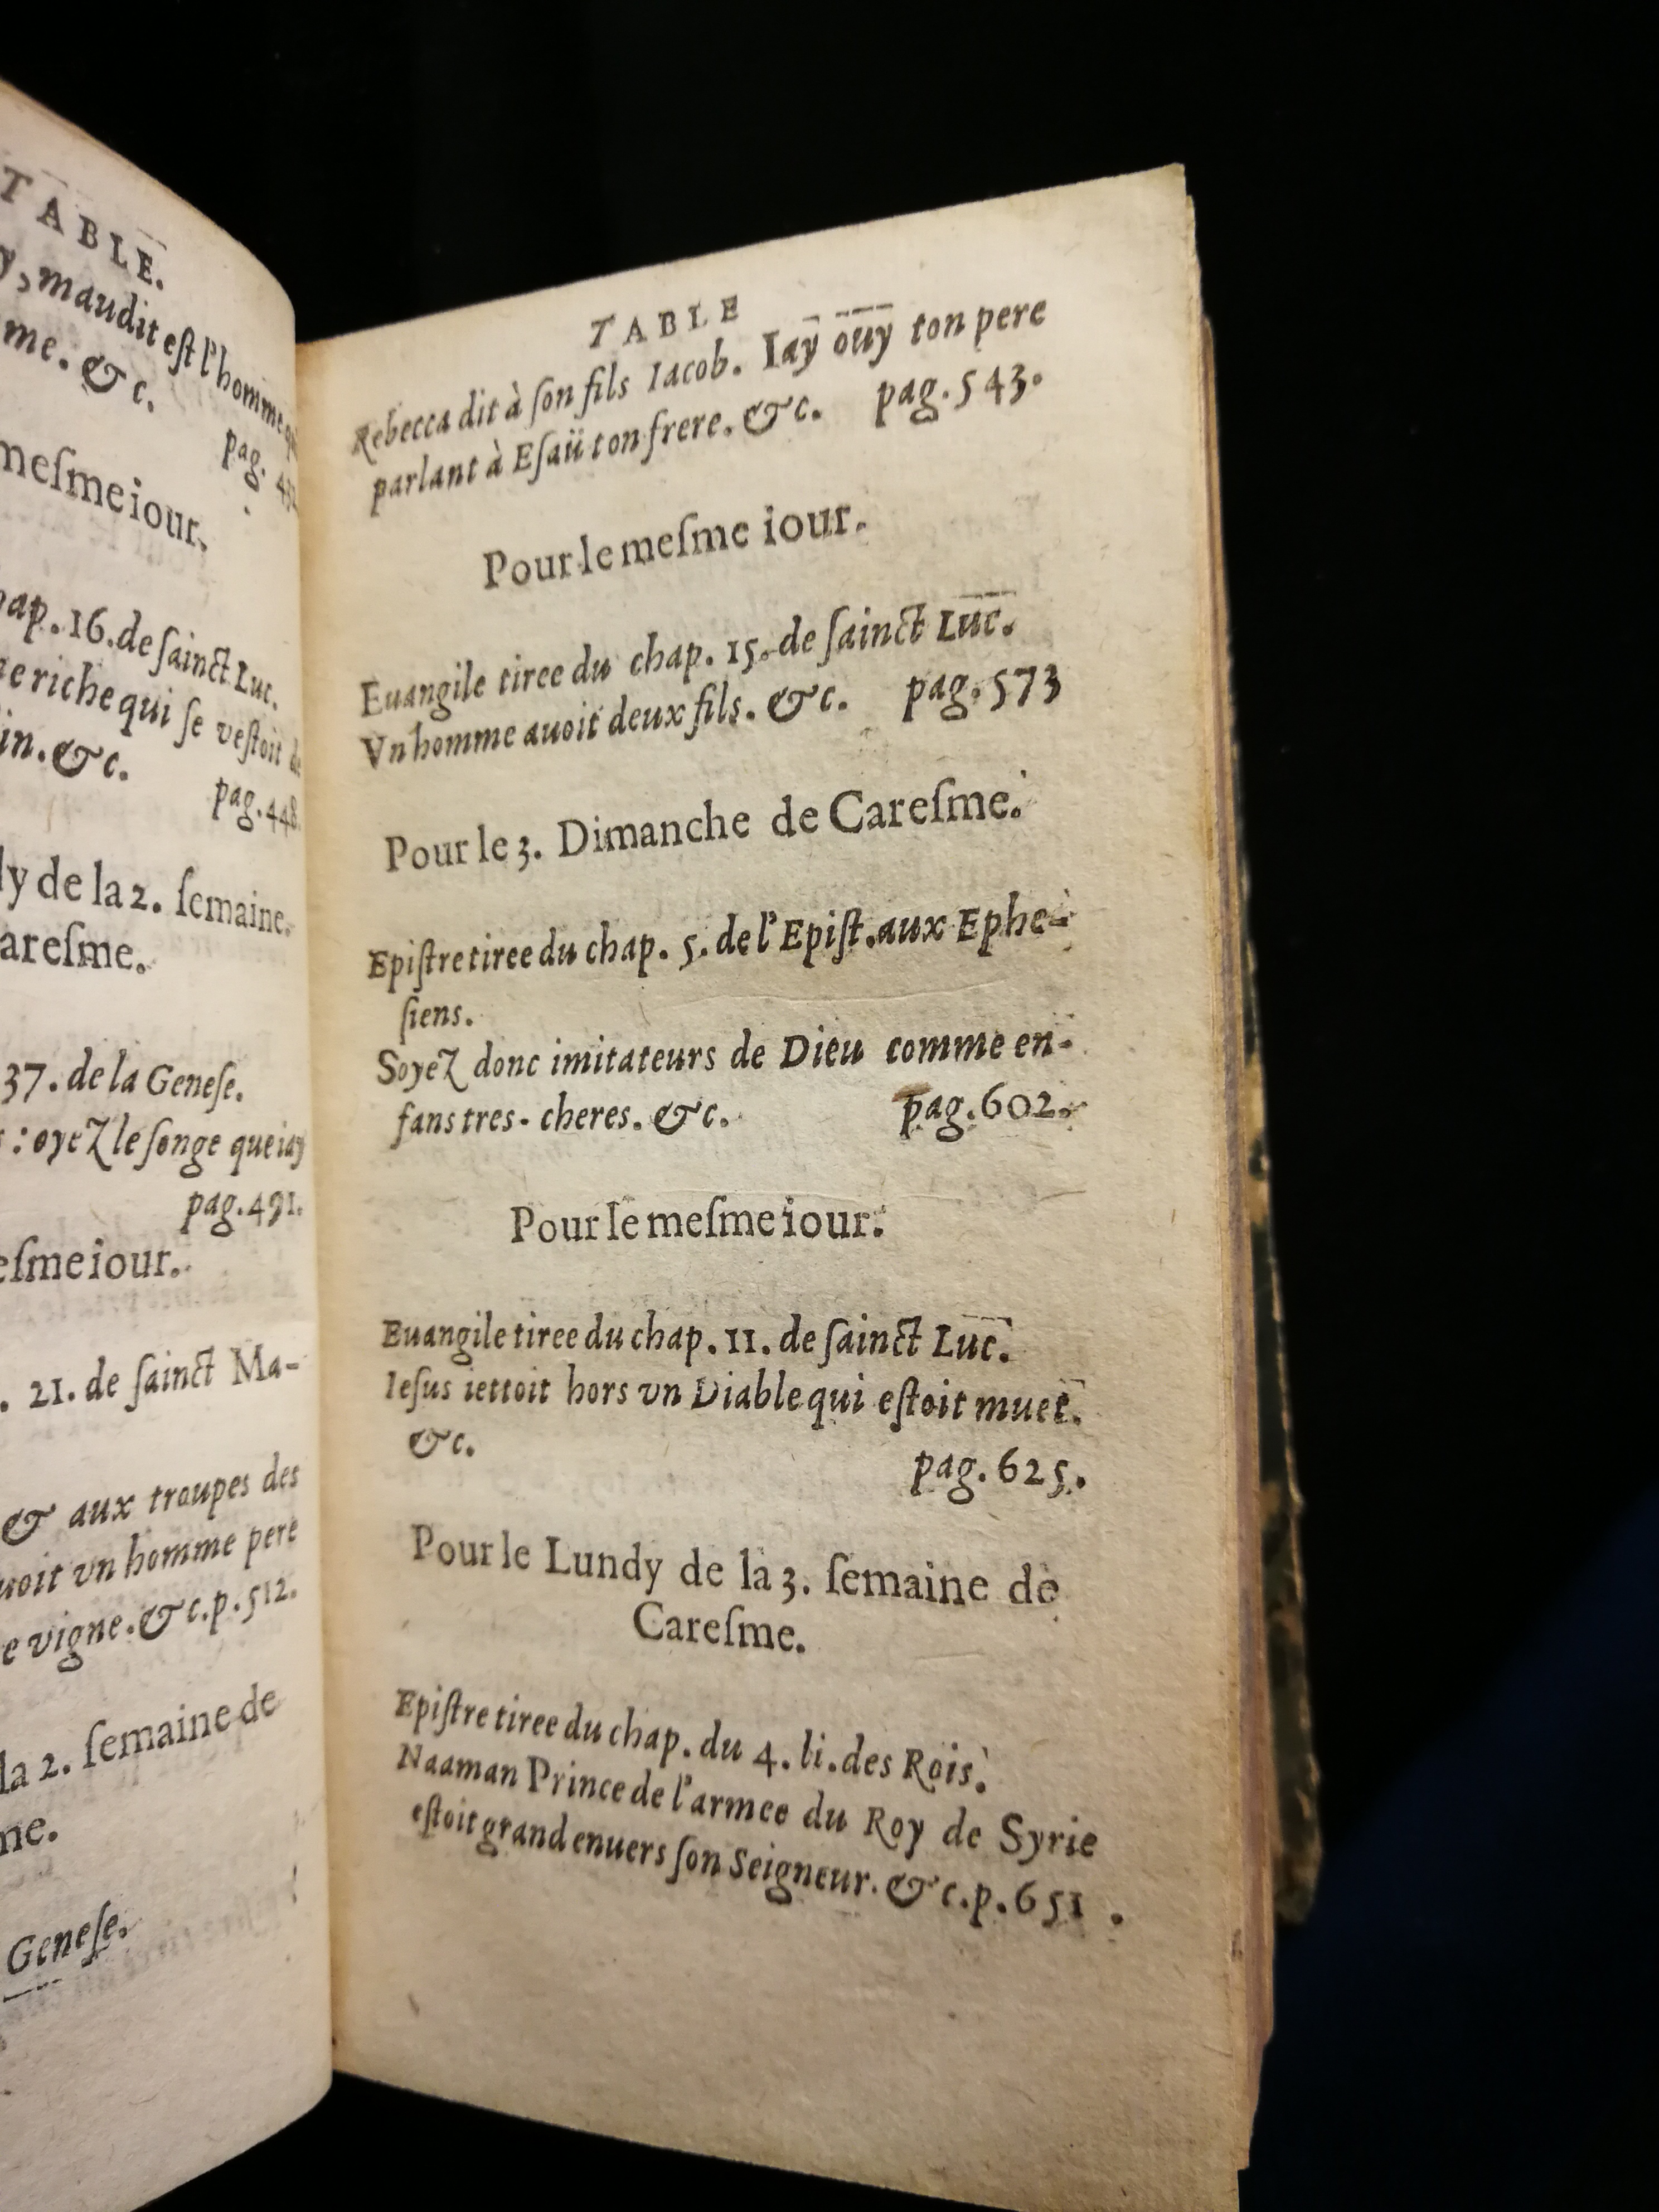 TABLE.
, maudit est l'homme
me. &c.
pag.
mesme iour.
16. de sainct Luc.
riche qui se vestoit
in. &c.
pag. 448.
de la 2. semaine
aresme.
37. de la Genese.
: oyez le songe que iay
pag. 491.
esme iour.
. 21. de sainct Ma-
& aux troupes des
uoit vn homme pere
e vigne. &c. p. 512.
la 2. semaine de
me.
Genese.
TABLE
Rebecca dit à son fils Iacob. Iaÿ oüy ton pere
parlant à Esaü ton frere. &c. pag. 543.
Pour le mesme iour.
Euangile tiree du chap. 15. de sainct Luc.
Vn homme auoit deux fils. &c. pag. 573
Pour le 3. Dimanche de Caresme.
Epistre tiree du chap. 5. de l'Epist. aux Ephe-
siens.
Soyez donc imitateurs de Dieu comme en-
fans tres-cheres. &c. pag. 602.
Pour le mesme iour.
Euangile tiree du chap. 11. de sainct Luc.
Iesus iettoit hors vn Diable qui estoit muet.
&c.
pag. 625.
Pour le Lundy de la 3. semaine de
Caresme.
Epistre tiree du chap. du 4. li. des Rois.
Naaman Prince de l'armee du Roy de Syrie
estoit grand enuers son Seigneur. &c. p. 651 .